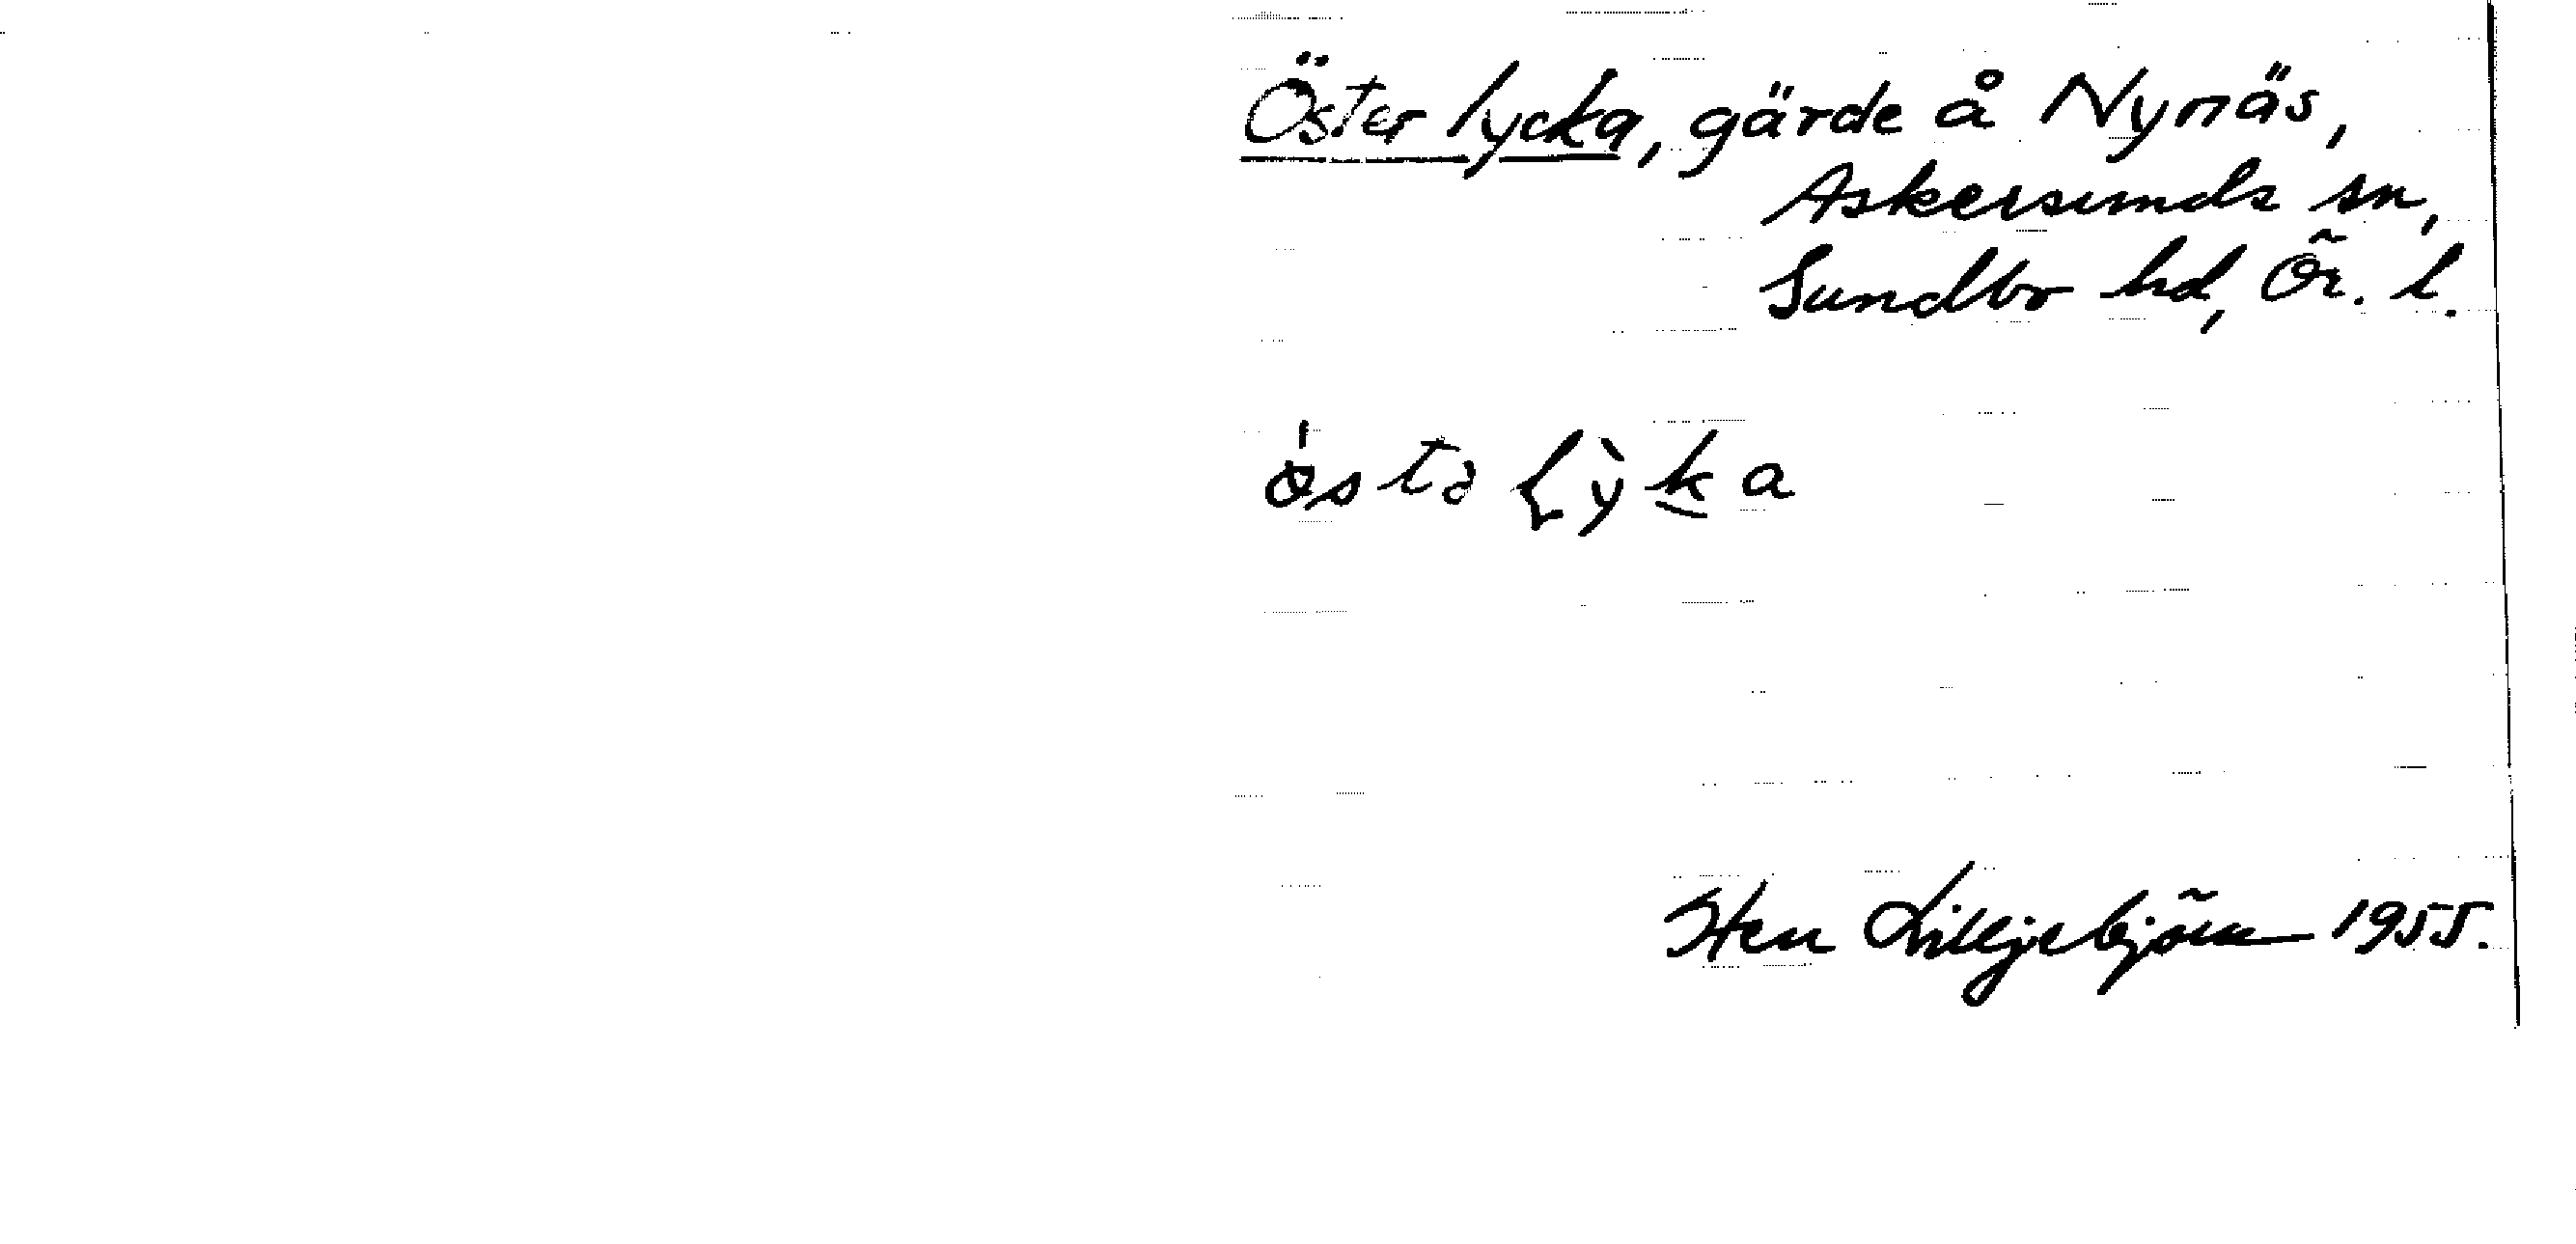 Öster lycka, gärde å Nynäs,
Askersunds sn,
Sundbo hd, Ör. l.
östa lỳka
Sten Lilljebjörn 1955.